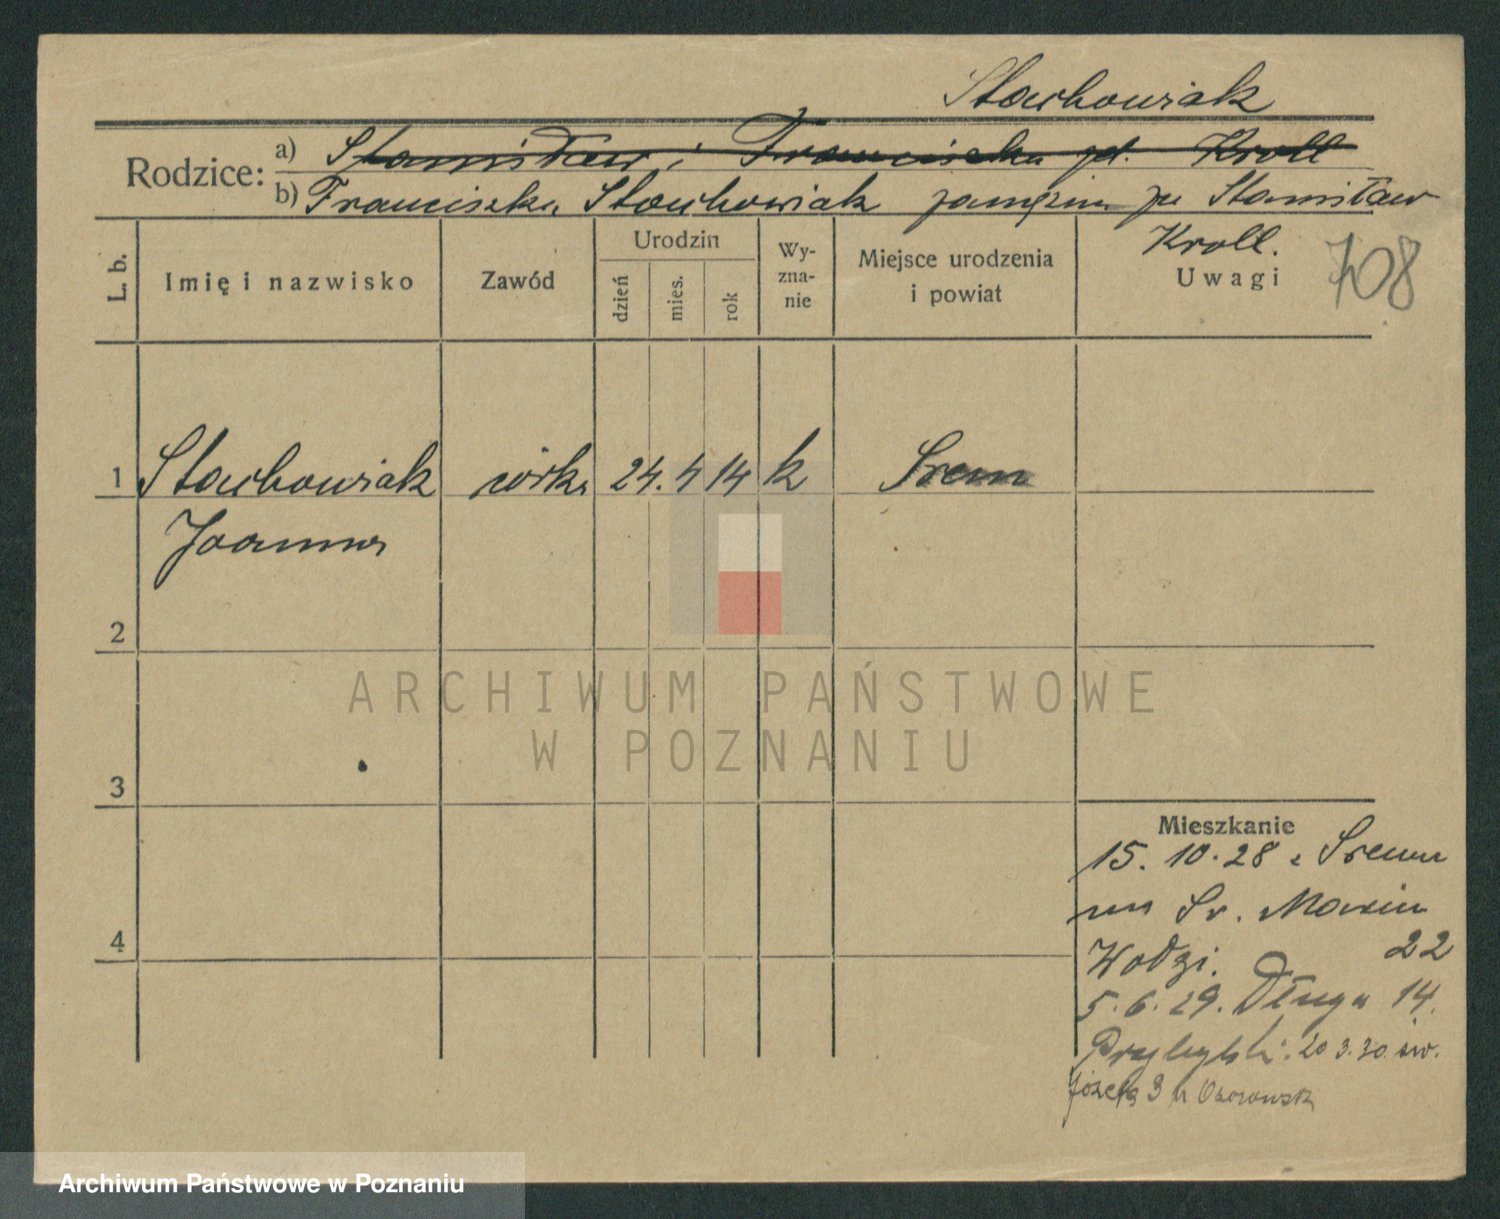 Stachowiak
Rodzice: a) Stanisław i Franciszka zd. Kroll
b) Franciszka Stachowiak zamężna za Stanisław
Kroll.
708
L. b.
Imię i nazwisko
Zawód
Urodzin
dzień
mies.
rok
Wy-
zna-
nie
Miejsce urodzenia
i powiat
Uwagi
1 Stachowiak córka 24. 4 14 k Śrem
Joanna
2
3
4
Mieszkanie
15. 10. 28 z Śremu
na Św. Marcin
Wodzi. 22
5. 6. 29. Długa 14.
Przybylski. 20 3. 30. św.
Józefa 3 u
ARCHIWUM PAŃSTWOWE
W POZNANIU
Archiwum Państwowe w Poznaniu